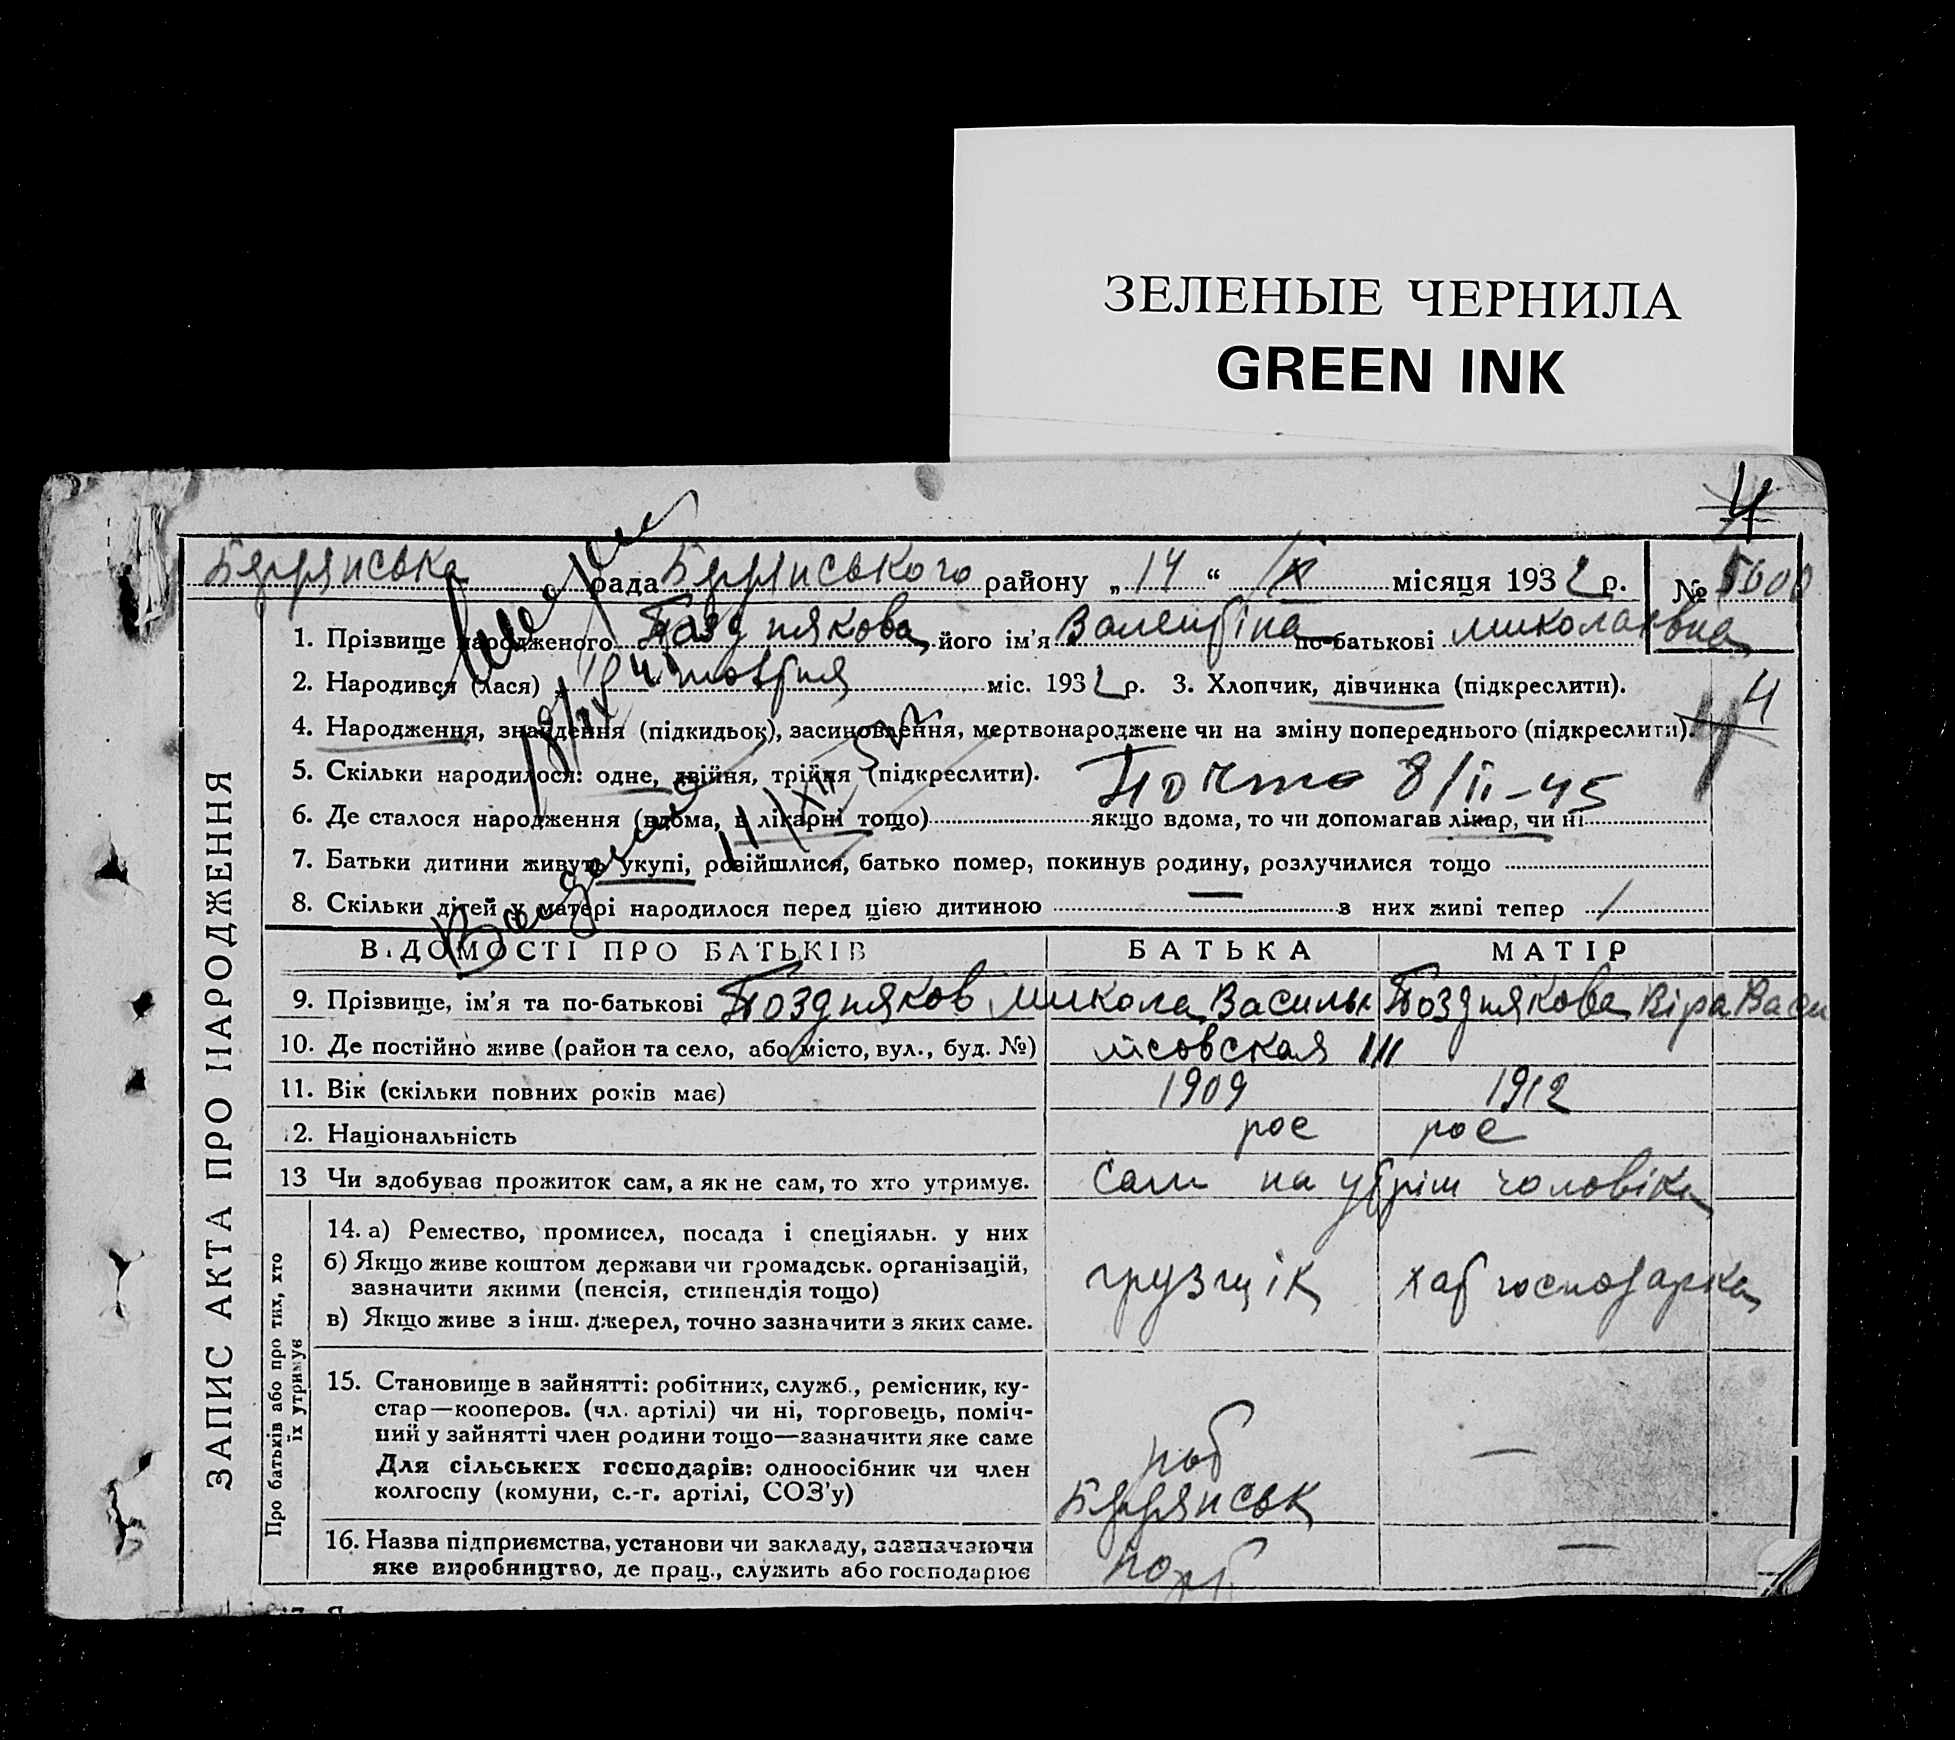 ЗЕЛЕНЫЕ ЧЕРНИЛА
GREEN INK
4
Бердянська рада Бердянського району „ 14 “ IX місяця 1932 р. №
1. Прізвище народженого Позднякова його ім'я Валентіна по-батькові миколаівна
2. Народився (лася) міс. 1932 р. 3. Хлопчик, дівчинка (підкреслити).
4
4. Народження, знайдення (підкидьок), засиновлення, мертвонароджене чи на зміну попереднього (підкреслити).
5. Скільки народилося: одне, двійня, трійня (підкреслити).
Почта 8/II-45
6. Де сталося народження (вдома, в лікарні тощо) якщо вдома, то чи допомагав лікар, чи ні
7. Батьки дитини живуть укупі, розійшлися, батько помер, покинув родину, розлучилися тощо
8. Скільки дітей у матері народилося перед цією дитиною — з них живі тепер /
ВІДОМОСТІ ПРО БАТЬКІВ БАТЬКА МАТІР
9. Прізвище, ім'я та по-батькові Поздняков микола Васильк Позднякова Віра Васи
10. Де постійно живе (район та село, або місто, вул., буд. №)
11. Вік (скільки повних років має) 1909 1912
12. Національність рос рос
13 Чи здобуває прожиток сам, а як не сам, то хто утримує. Сам на утрім чоловіка
14. а) Ремество, промисел, посада і спеціяльн. у них
б) Якщо живе коштом держави чи громадськ. організацій,
зазначити якими (пенсія, стипендія тощо)
в) Якщо живе з інш. джерел, точно зазначити з яких саме.
грузщік хат господарка
15. Становище в зайнятті: робітник, служб., ремісник, ку-
стар—кооперов. (чл. артілі) чи ні, торговець, поміч-
ний у зайнятті член родини тощо—зазначити яке саме
Для сільських господарів: одноосібник чи член
колгоспу (комуни, с.-г. артілі, СОЗ'у)
роб —
Бердянськ
16. Назва підприємства, установи чи закладу, зазначаючи
яке виробництво, де прац., служить або господарює
порт —
ЗАПИС АКТА ПРО НАРОДЖЕННЯ
Про батьків або про тих, хто
їх утримує